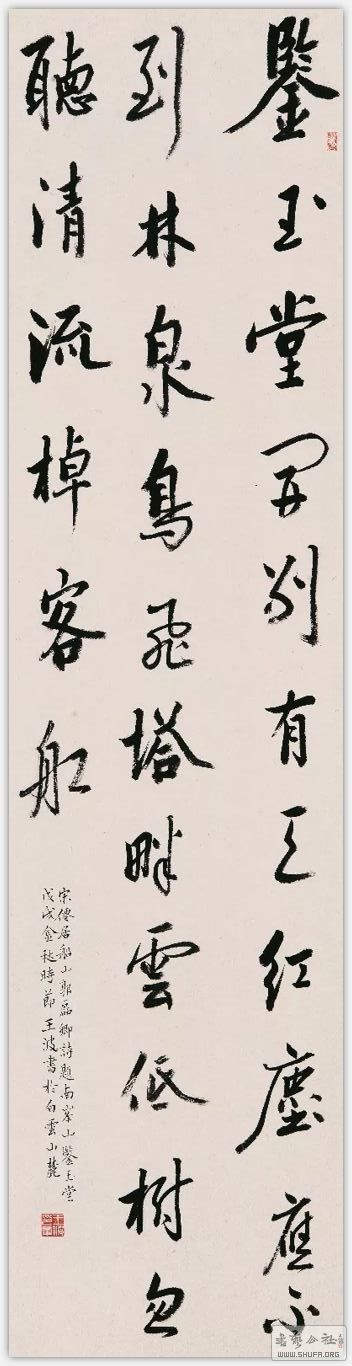 鑒玉堂開別有天紅塵應不
到林泉鳥飛塔畔雲低樹忽
聽清流棹客船
宋僊居船山郭磊卿詩題南峯山鑒玉堂
戊戌金秋時節王波書於白雲山麓
书艺公社
WWW.SHUFA.ORG